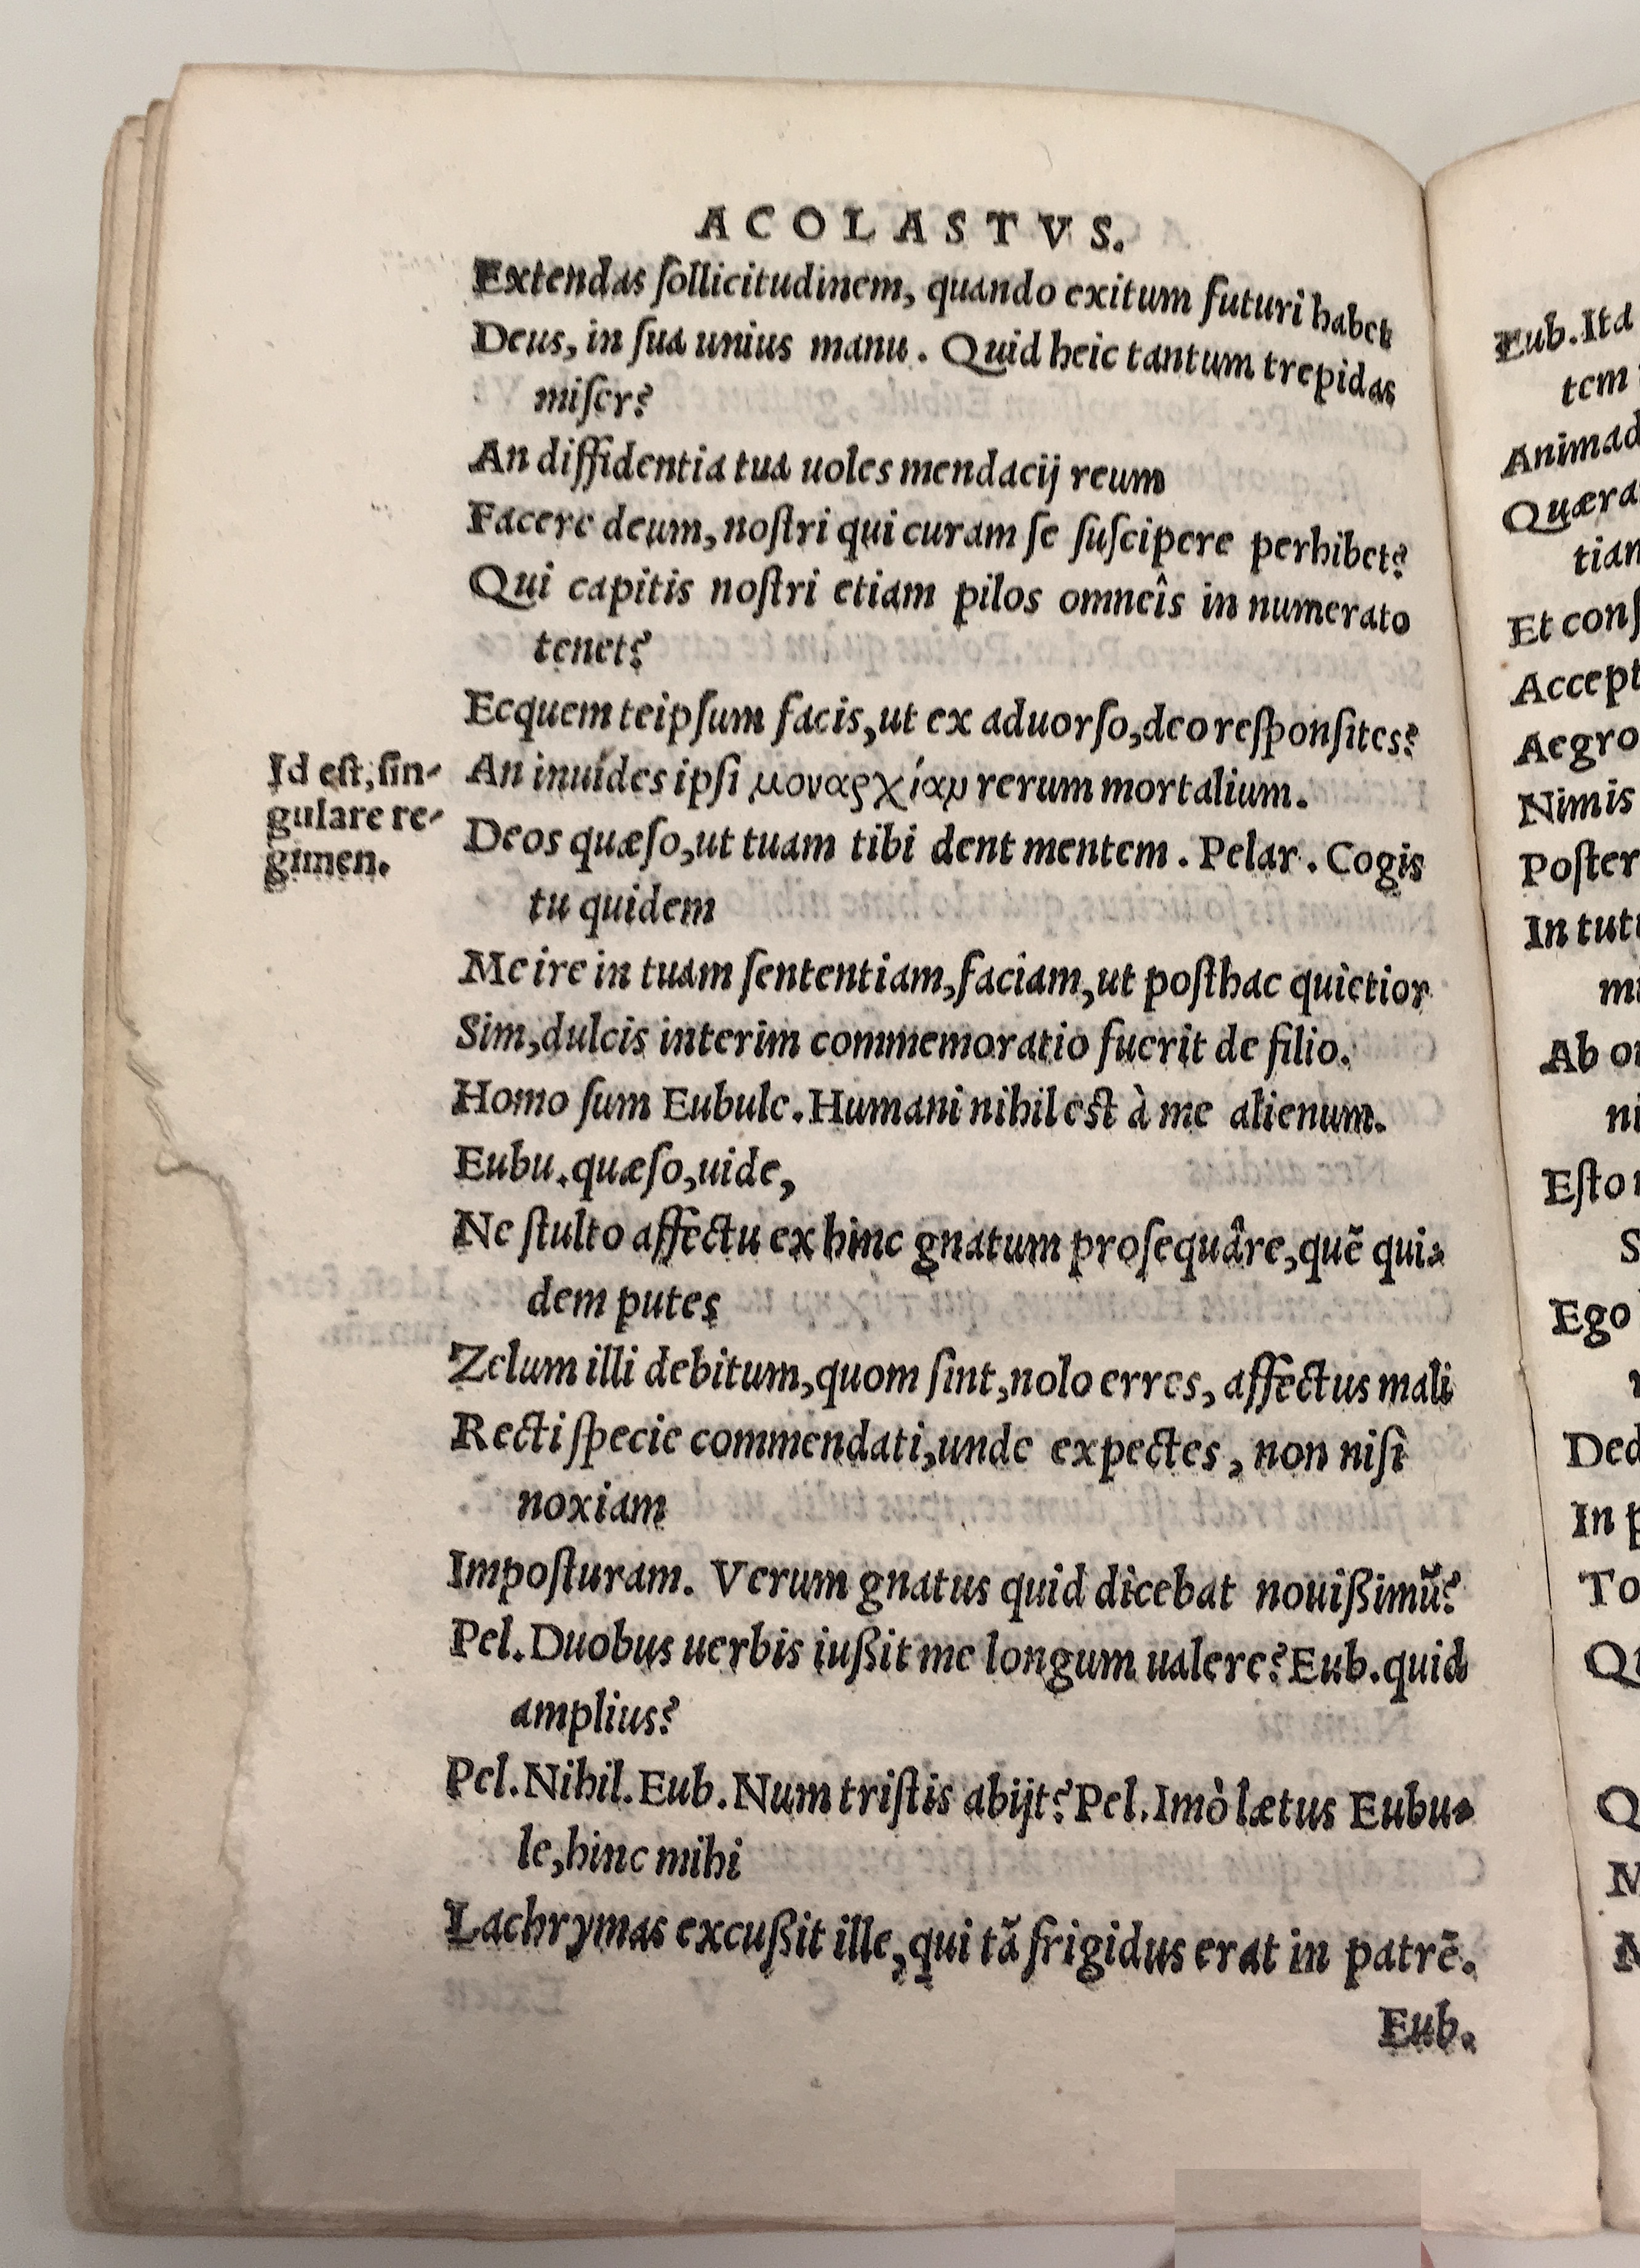 ACOLASTVS.
Extendas ſollicitudinem, quando exitum futuri habet
Deus, in ſua unius manu. Quid heic tantum trepidas
miſer?
An diffidentia tua uoles mendacij reum
Facere deum, noſtri qui curam ſe ſuſcipere perhibet?
Qui capitis noſtri etiam pilos omneîs in numerato
tenet?
Ecquem teipſum facis, ut ex aduorſo, deo reſponſites?
Id eſt, ſin-
gulare re-
gimen.
An inuídes ipſi μοναρχίαν rerum mortalium.
Deos quæſo, ut tuam tibi dent mentem. Pelar. Cogis
tu quidem
Me ire in tuam ſententiam, faciam, ut poſthac quietior
Sim, dulcis interim commemoratio fuerit de filio.
Homo ſum Eubule. Humani nihil eſt à me alienum.
Eubu. quæſo, uide,
Ne ſtulto affectu ex hinc gnatum proſequâre, quē qui-
dem putes
Zelum illi debitum, quom ſint, nolo erres, affectus mali
Recti ſpecie commendati, unde expectes, non niſi
noxiam
Impoſturam. Verum gnatus quid dicebat nouißimū?
Pel. Duobus uerbis iußit me longum ualere? Eub. quid
amplius?
Pel. Nihil. Eub. Num triſtis abijt? Pel. Imò lætus Eubu-
le, hinc mihi
Lachrymas excußit ille, qui tā frigidus erat in patrē.
Eub.
Eub. Ita
tem
Animad
Quæra
tian
Et conſ
Accept
Aegro
Nimis
Poſter
In tut
Ab o
ni
Eſto
S
Ego
Ded
In p
To
Q
M